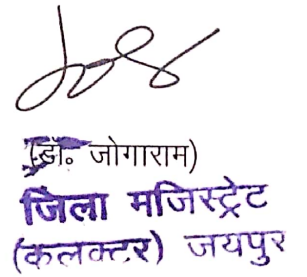 (डॉ. जोगाराम)
जिला मजिस्ट्रेट
(कलक्टर) जयपुर